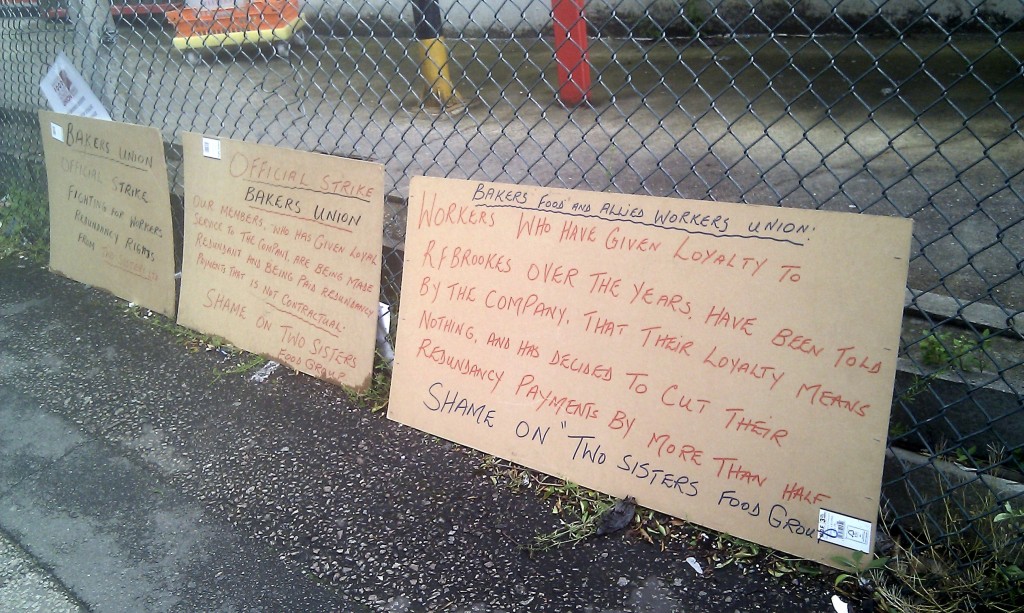 BAKERS UNION
OFFICIAL STRIKE
FIGHTING FOR WORKERS
REDUNDANCY RIGHTS
FROM TWO SISTERS LTD
OFFICIAL STRIKE
BAKERS UNION
OUR MEMBERS, WHO HAS GIVEN LOYAL
SERVICE TO THE COMPANY. ARE BEING MADE
REDUNDANT AND BEING PAID REDUNDANCY
PAYMENTS THAT IS NOT CONTRACTUAL.
SHAME ON TWO SISTERS
FOOD GROUP
BAKERS FOOD AND ALLIED WORKERS UNION:
WORKERS WHO HAVE GIVEN LOYALTY TO
RFBROOKES OVER THE YEARS. HAVE BEEN TOLD
BY THE COMPANY. THAT THEIR LOYALTY MEANS
NOTHING, AND HAS DECIDED TO CUT THEIR
REDUNDANCY PAYMENTS BY MORE THAN HALF
SHAME ON "TWO SISTERS FOOD GROUP